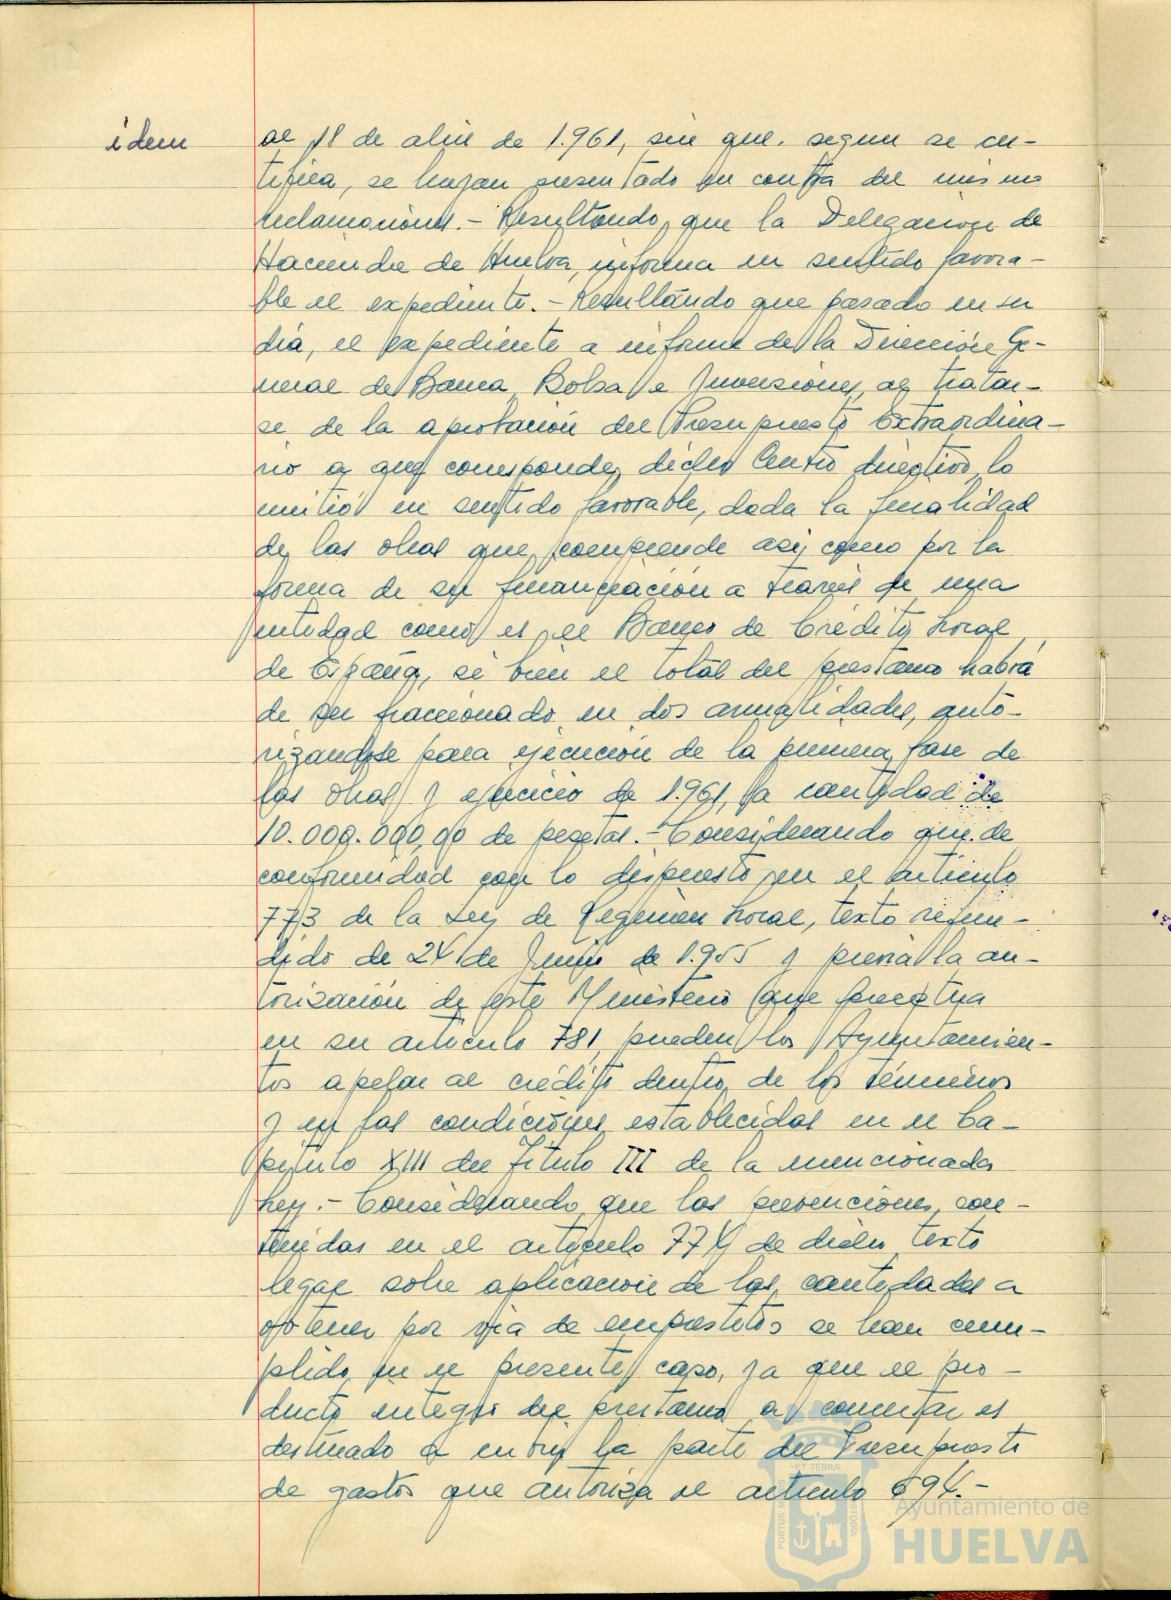 idem
al 18 de abril de 1.961, sin que, segun se cer-
tifica, se hayan presentado en contra del mismo
reclamaciones.- Resultando, que la Delegación de
Hacienda de Huelva, informa en sentido favora-
ble el expediente.- Resultando que pasado en su
dia, el expediente a informe de la Dirección Ge-
neral de Banca, Bolsa e Inversiones, al tratar-
se de la aprobación del Presupuesto Extraordina-
rio a que corresponde, dicho Centro directivo, lo
emitió en sentido favorable, dada la finalidad
de las obras que comprende asi como por la
forma de su financiación a través de una
entidad como es el Banco de Crédito Local
de España, si bien el total del prestamo habrá
de ser fraccionado en dos anualidades, auto-
rizandose para ejecución de la primera fase de
las obras y ejercicio de 1.961, la cantidad de
10.000.000,00 de pesetas.- Considerando que de
conformidad con lo dispuesto en el articulo
773 de la Ley de Regimen Local, texto refun-
dido de 24 de Junio de 1.955 y previa la au-
torización de este Ministerio que preceptua
en su articulo 781, pueden los Ayuntamien-
tos apelar al crédito dentro de los términos
y en las condiciones establecidas en el Ca-
pitulo XIII del Titulo III de la mencionada
Ley.- Considerando que las prevenciones con-
tenidas en el articulo 774 de dicho texto
legal sobre aplicación de las cantidades a
obtener por via de emprestitos se han cum-
plido en el presente caso, ya que el pro-
ducto integro del prestamo a concertar es
destinado a nutrir la parte del Presupuesto
de gastos que autoriza el articulo 694.-
PORTUS MARIS ET TERRÆ CUSTODIA
Ayuntamiento de
HUELVA